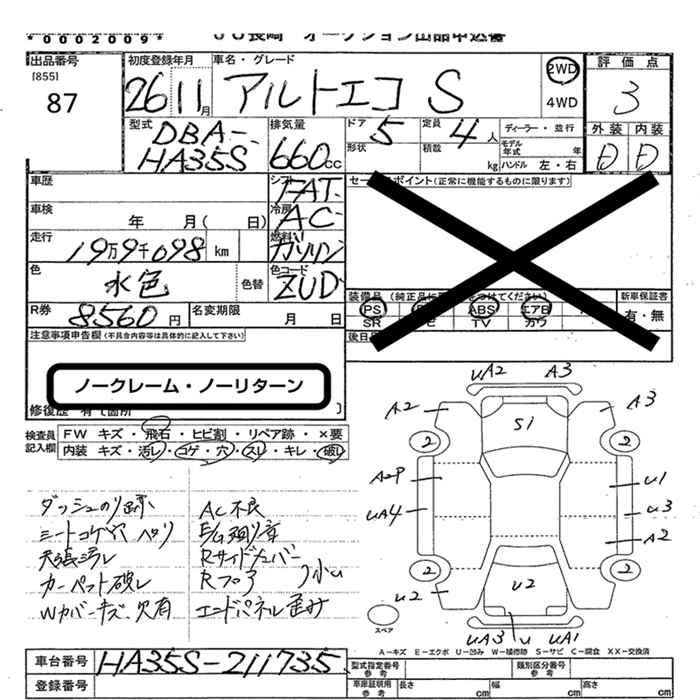 *0002009*
JU長崎 オークション出品申込書
出品番号 初度登録年月 車名・グレード 評価点
[855]
87 26 11月 アルトエコ S 2WD 4WD 3
型式 DBA-HA35S 排気量 660cc ドア 5 定員 4人 ディーラー・並行 外装 内装
形状 積載 kg モデル年式 年 ハンドル 左・右 D D
車歴 シフト FAT セールスポイント(正常に機能するものに限ります)
車検 年 月( 日) 冷房 AC
走行 19万9千098 km 燃料 ガソリン
色 水色 色替 色コード ZUD
装備品 (純正品に をつけてください) 新車保証書
PS ABS エアB 有・無
SR TV カワ
R券 8560円 名変期限 月 日 後日
注意事項申告欄(不具合内容等は具体的に記入して下さい)
ノークレーム・ノーリターン
修復歴 有て箇所
検査員記入欄 FW キズ・飛石・ヒビ割・リペア跡・×要
内装 キズ・汚レ・コゲ・穴・スレ・キレ・破レ
ダッシュのり跡 AC不良
シートコゲ穴 ヘタリ E/G廻り音
天張汚レ Rサイドメンバー
カーペット破レ Rフロア 小U
Wカバーキズ欠有 エンドパネル歪み
UA2 A3
A2 S1 A3
2 2
A2P U1
UA4 U3
A2
2 2
U2 U2
UA3 U UA1
スペア
A-キズ E-エクボ U-凹み W-補修跡 S-サビ C-腐食 XX-交換済
車台番号 HA35S-211735
登録番号
型式指定番号 参考 類別区分番号 参考
車庫証明用 参考 長さ cm 幅 cm 高さ cm